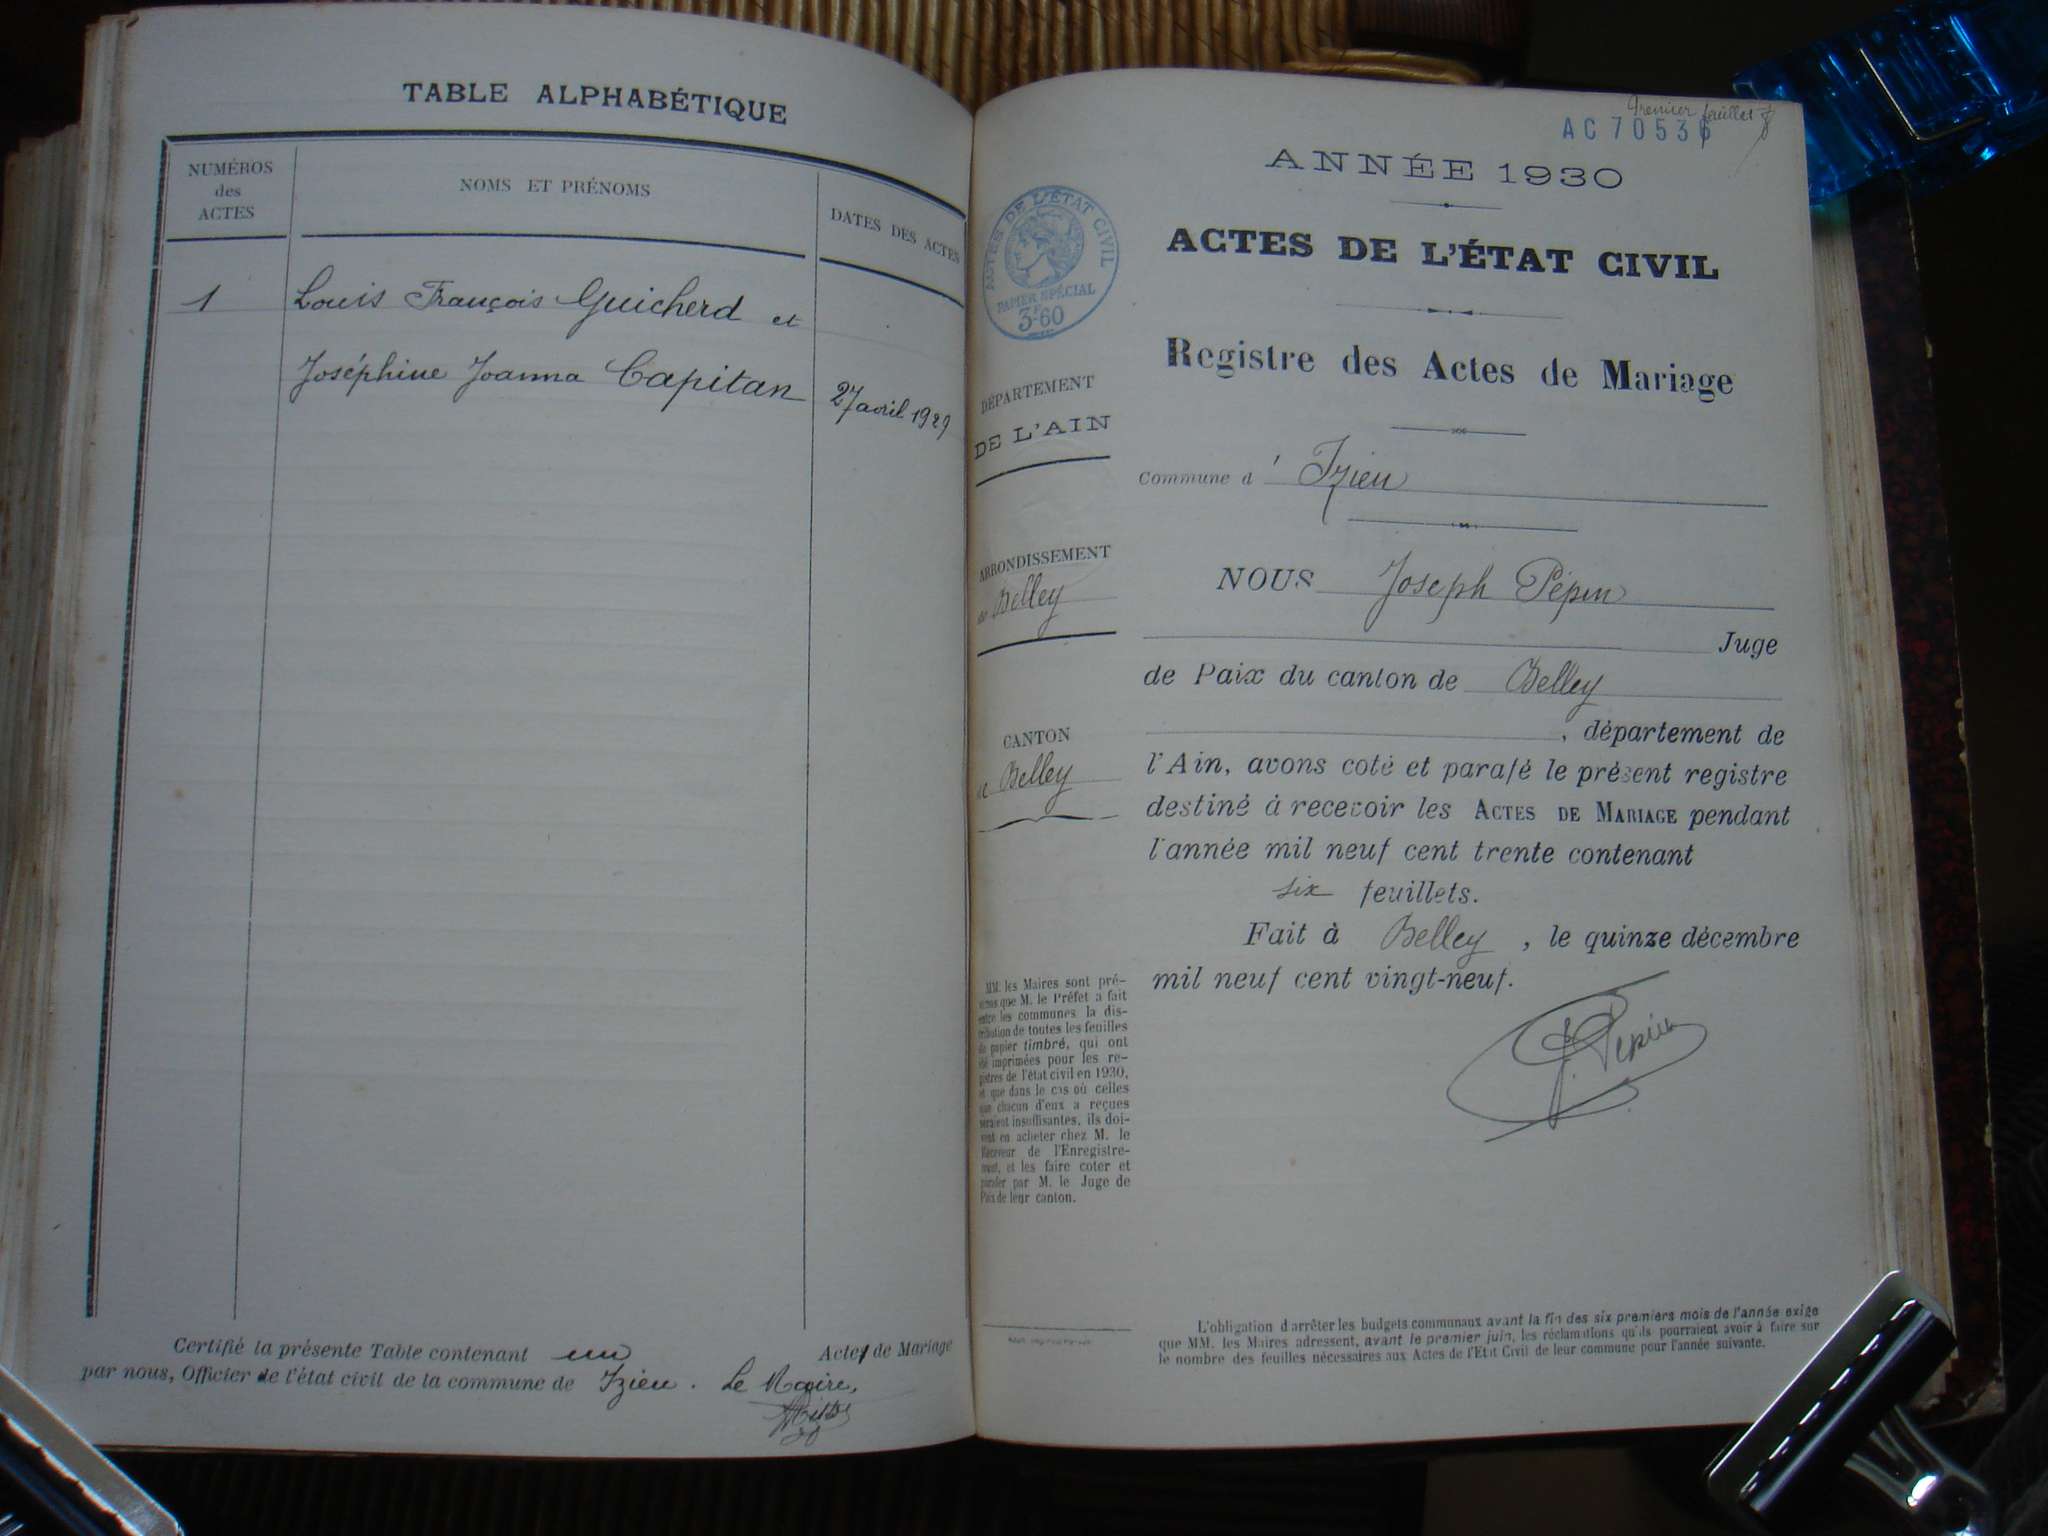 TABLE ALPHABÉTIQUE
NUMÉROS
des
ACTES
NOMS ET PRÉNOMS
DATES DES ACTES
1
Louis François Guicherd et
Joséphine Joanna Capitan
27 avril 1929
Certifié la présente Table contenant un Acte de Mariage
par nous, Officier de l'état civil de la commune de Izieu. Le Maire,
Premier feuillet
AC 70536
ANNÉE 1930
ACTES DE L'ÉTAT CIVIL
PAPIER SPÉCIAL
3F60
ACTES DE L'ÉTAT CIVIL
Registre des Actes de Mariage
DÉPARTEMENT
DE L'AIN
Commune d' Izieu
ARRONDISSEMENT
de Belley
NOUS Joseph Pépin
Juge
de Paix du canton de Belley
CANTON
de Belley
, département de
l'Ain, avons coté et parafé le présent registre
destiné à recevoir les ACTES DE MARIAGE pendant
l'année mil neuf cent trente contenant
six feuillets.
Fait à Belley, le quinze décembre
mil neuf cent vingt-neuf.
J. Pépin
MM. les Maires sont pré-
venus que M. le Préfet a fait
entre les communes la dis-
tribution de toutes les feuilles
de papier timbré, qui ont
été imprimées pour les re-
gistres de l'état civil en 1930,
et que dans le cas où celles
que chacun d'eux a reçues
seraient insuffisantes, ils doi-
vent en acheter chez M. le
Receveur de l'Enregistre-
ment, et les faire coter et
parafer par M. le Juge de
Paix de leur canton.
L'obligation d'arrêter les budgets communaux avant la fin des six premiers mois de l'année exige
que MM. les Maires adressent, avant le premier juin, les réclamations qu'ils pourraient avoir à faire sur
le nombre des feuilles nécessaires aux Actes de l'Etat Civil de leur commune pour l'année suivante.